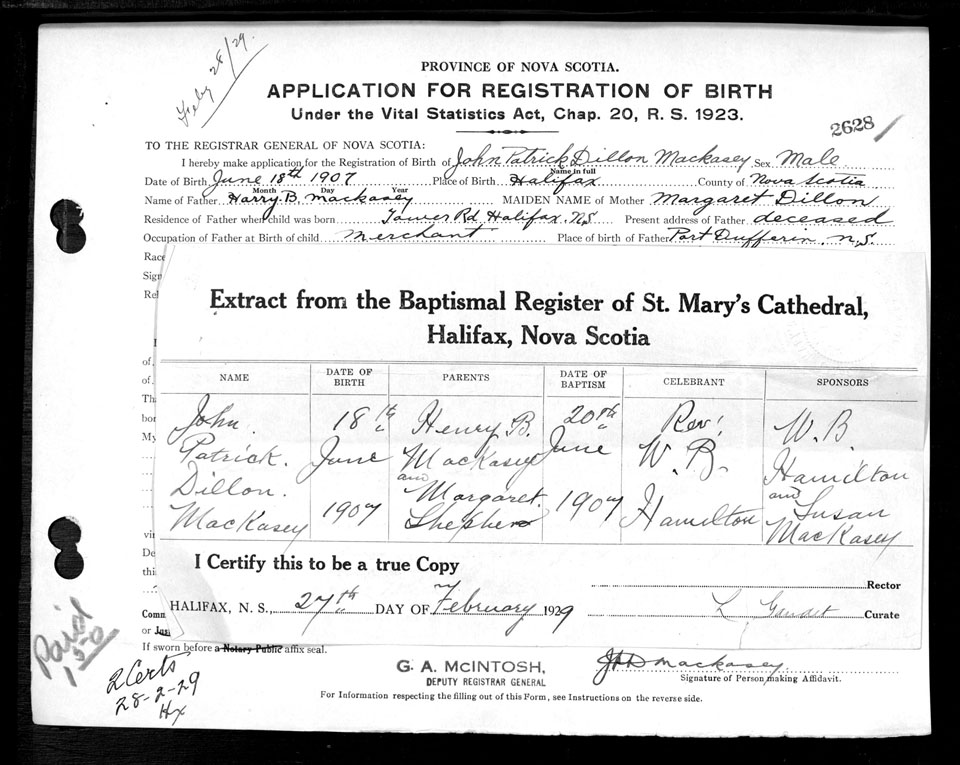 Feby 28/29.
PROVINCE OF NOVA SCOTIA.
APPLICATION FOR REGISTRATION OF BIRTH
Under the Vital Statistics Act, Chap. 20, R. S. 1923.
2628
TO THE REGISTRAR GENERAL OF NOVA SCOTIA:
I hereby make application for the Registration of Birth of John Patrick Dillon Mackasey Sex Male
Name in full
Date of Birth June 18th 1907 Place of Birth Halifax County of Nova Scotia
Month Day Year
Name of Father Harry B. Mackasey MAIDEN NAME of Mother Margaret Dillon
Residence of Father when child was born Tower Rd Halifax, N.S. Present address of Father deceased
Occupation of Father at Birth of child Merchant Place of birth of Father Port Dufferin, N.S.
Race
Sign
Rel
Extract from the Baptismal Register of St. Mary's Cathedral,
Halifax, Nova Scotia
of.
of.
Th
bor
My
NAME DATE OF BIRTH PARENTS DATE OF BAPTISM CELEBRANT SPONSORS
John. 18th Henry B. 20th Rev. W. B.
Patrick. June MacKasey June W. B. Hamilton
Dillon. and Margaret. and Susan
MacKasey 1907 Shepherd 1907 Hamilton MacKasey
vi
De
thi
I Certify this to be a true Copy
Rector
HALIFAX, N. S., 27th DAY OF February 1929 L. Gaudet Curate
Comm
or Jus
If sworn before a Notary Public affix seal.
Paid
1 50
2 Certs
28-2-29
Hx
G. A. McINTOSH,
DEPUTY REGISTRAR GENERAL
JPD Mackasey.
Signature of Person making Affidavit.
For Information respecting the filling out of this Form, see Instructions on the reverse side.